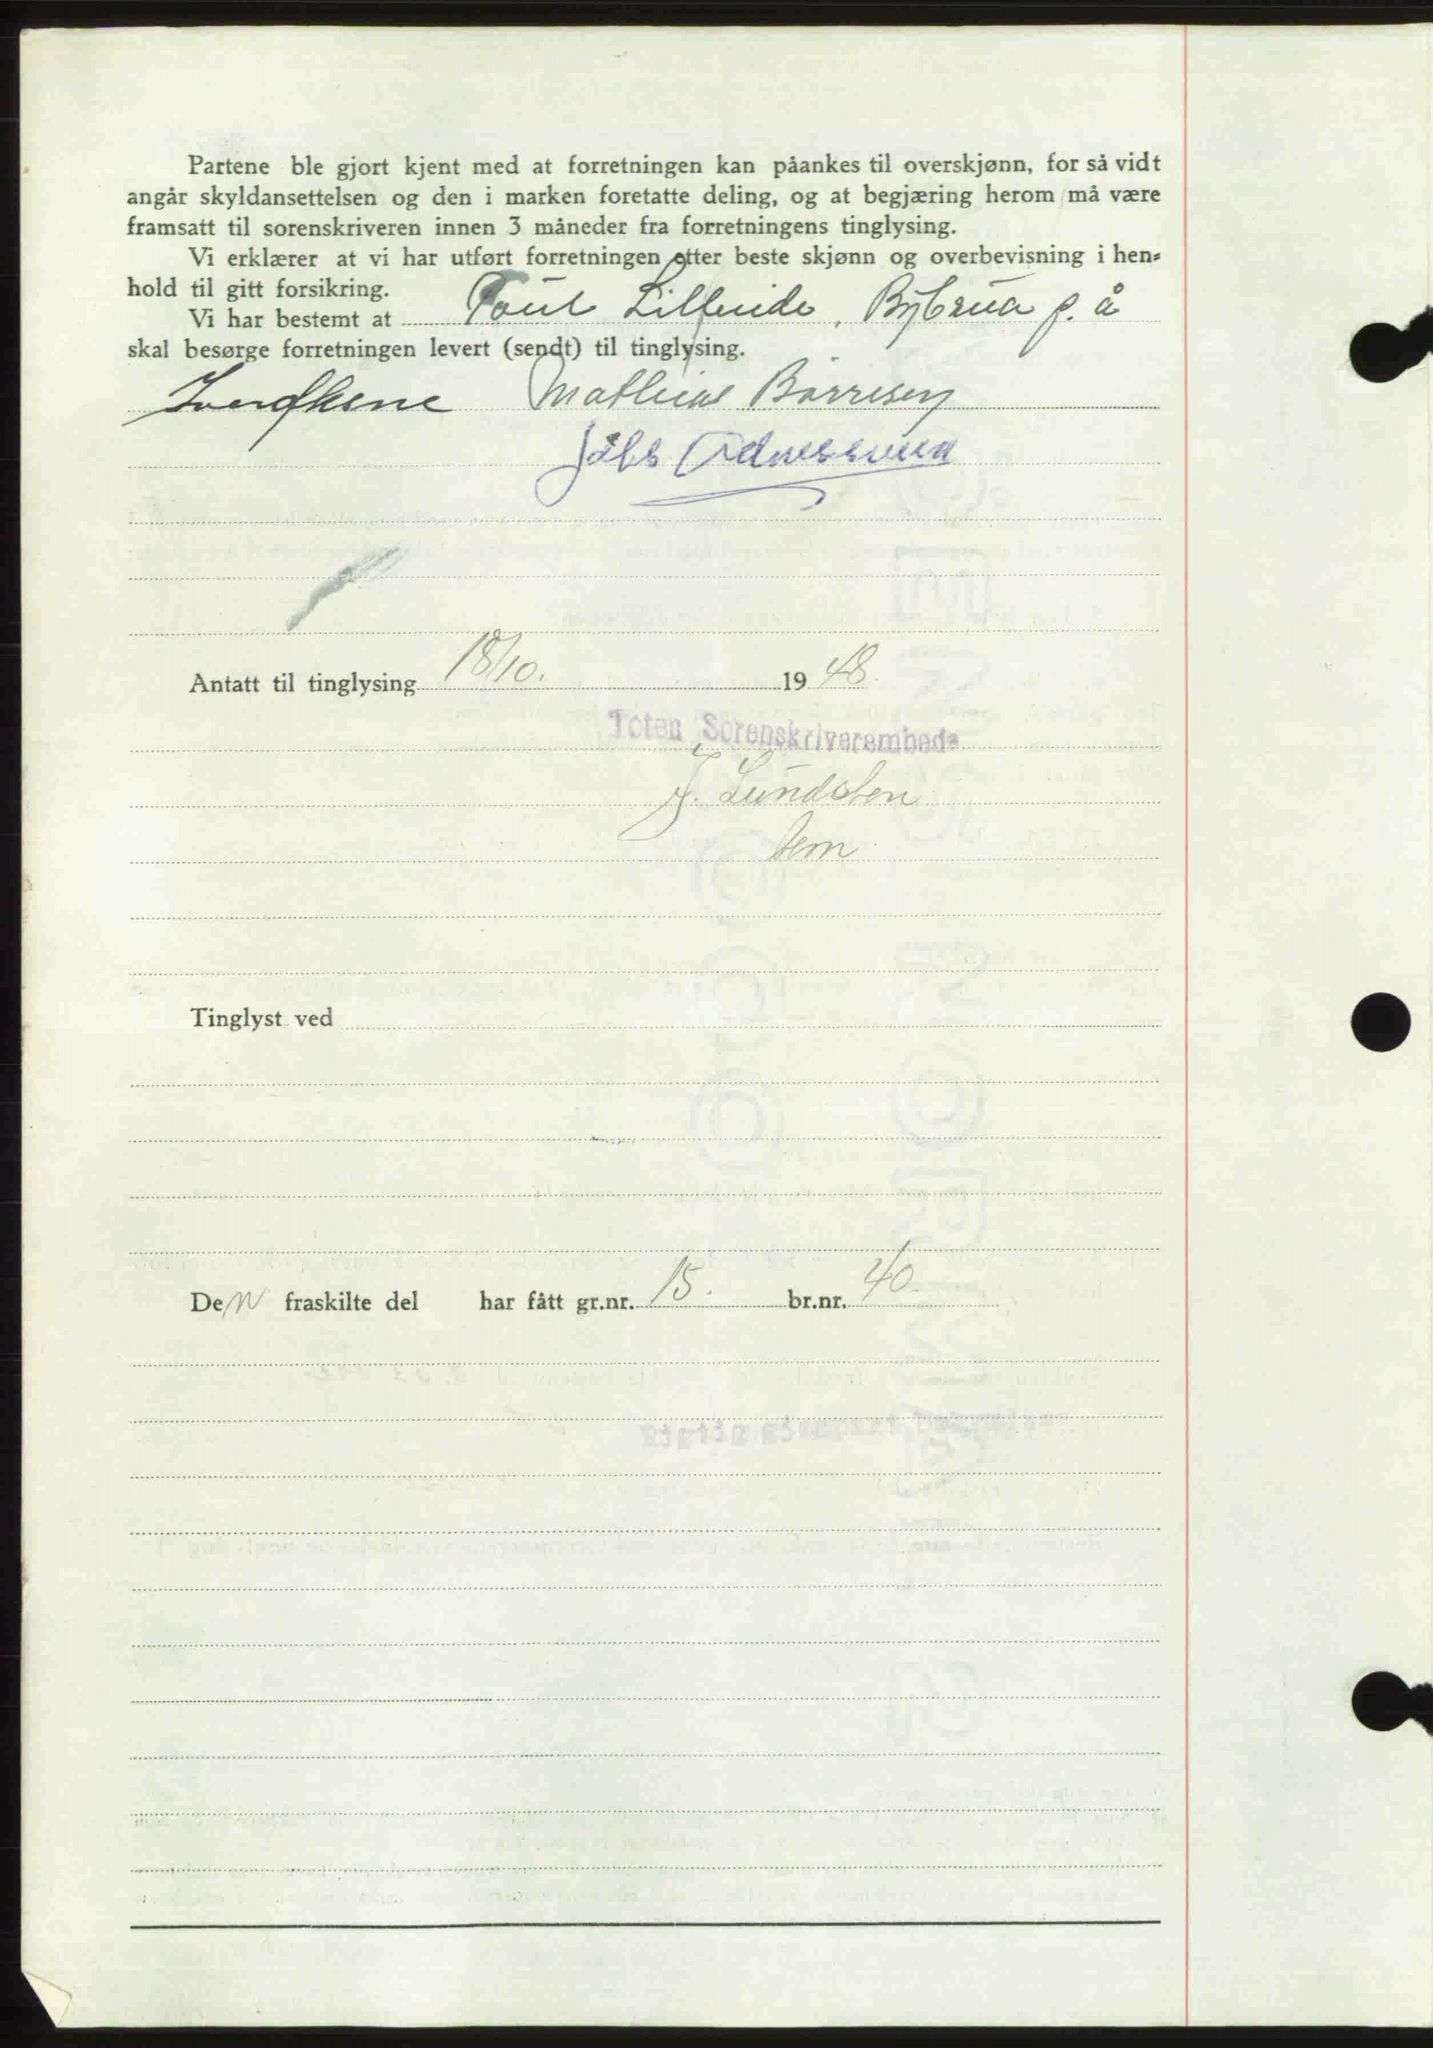 Partene ble gjort kjent med at forretningen kan påankes til overskjønn, for så vidt
angår skyldansettelsen og den i marken foretatte deling, og at begjæring herom må være
framsatt til sorenskriveren innen 3 måneder fra forretningens tinglysing.
Vi erklærer at vi har utført forretningen etter beste skjønn og overbevisning i hen-
hold til gitt forsikring.
Vi har bestemt at Poul Lilleeide, Bybrua p. å
skal besørge forretningen levert (sendt) til tinglysing.
Mathias Börresen
Antatt til tinglysing 18/10. 1948
Toten Sorenskriverembede
J. Lundsten
Tinglyst ved
Den fraskilte del har fått gr.nr. 15. br.nr. 40.